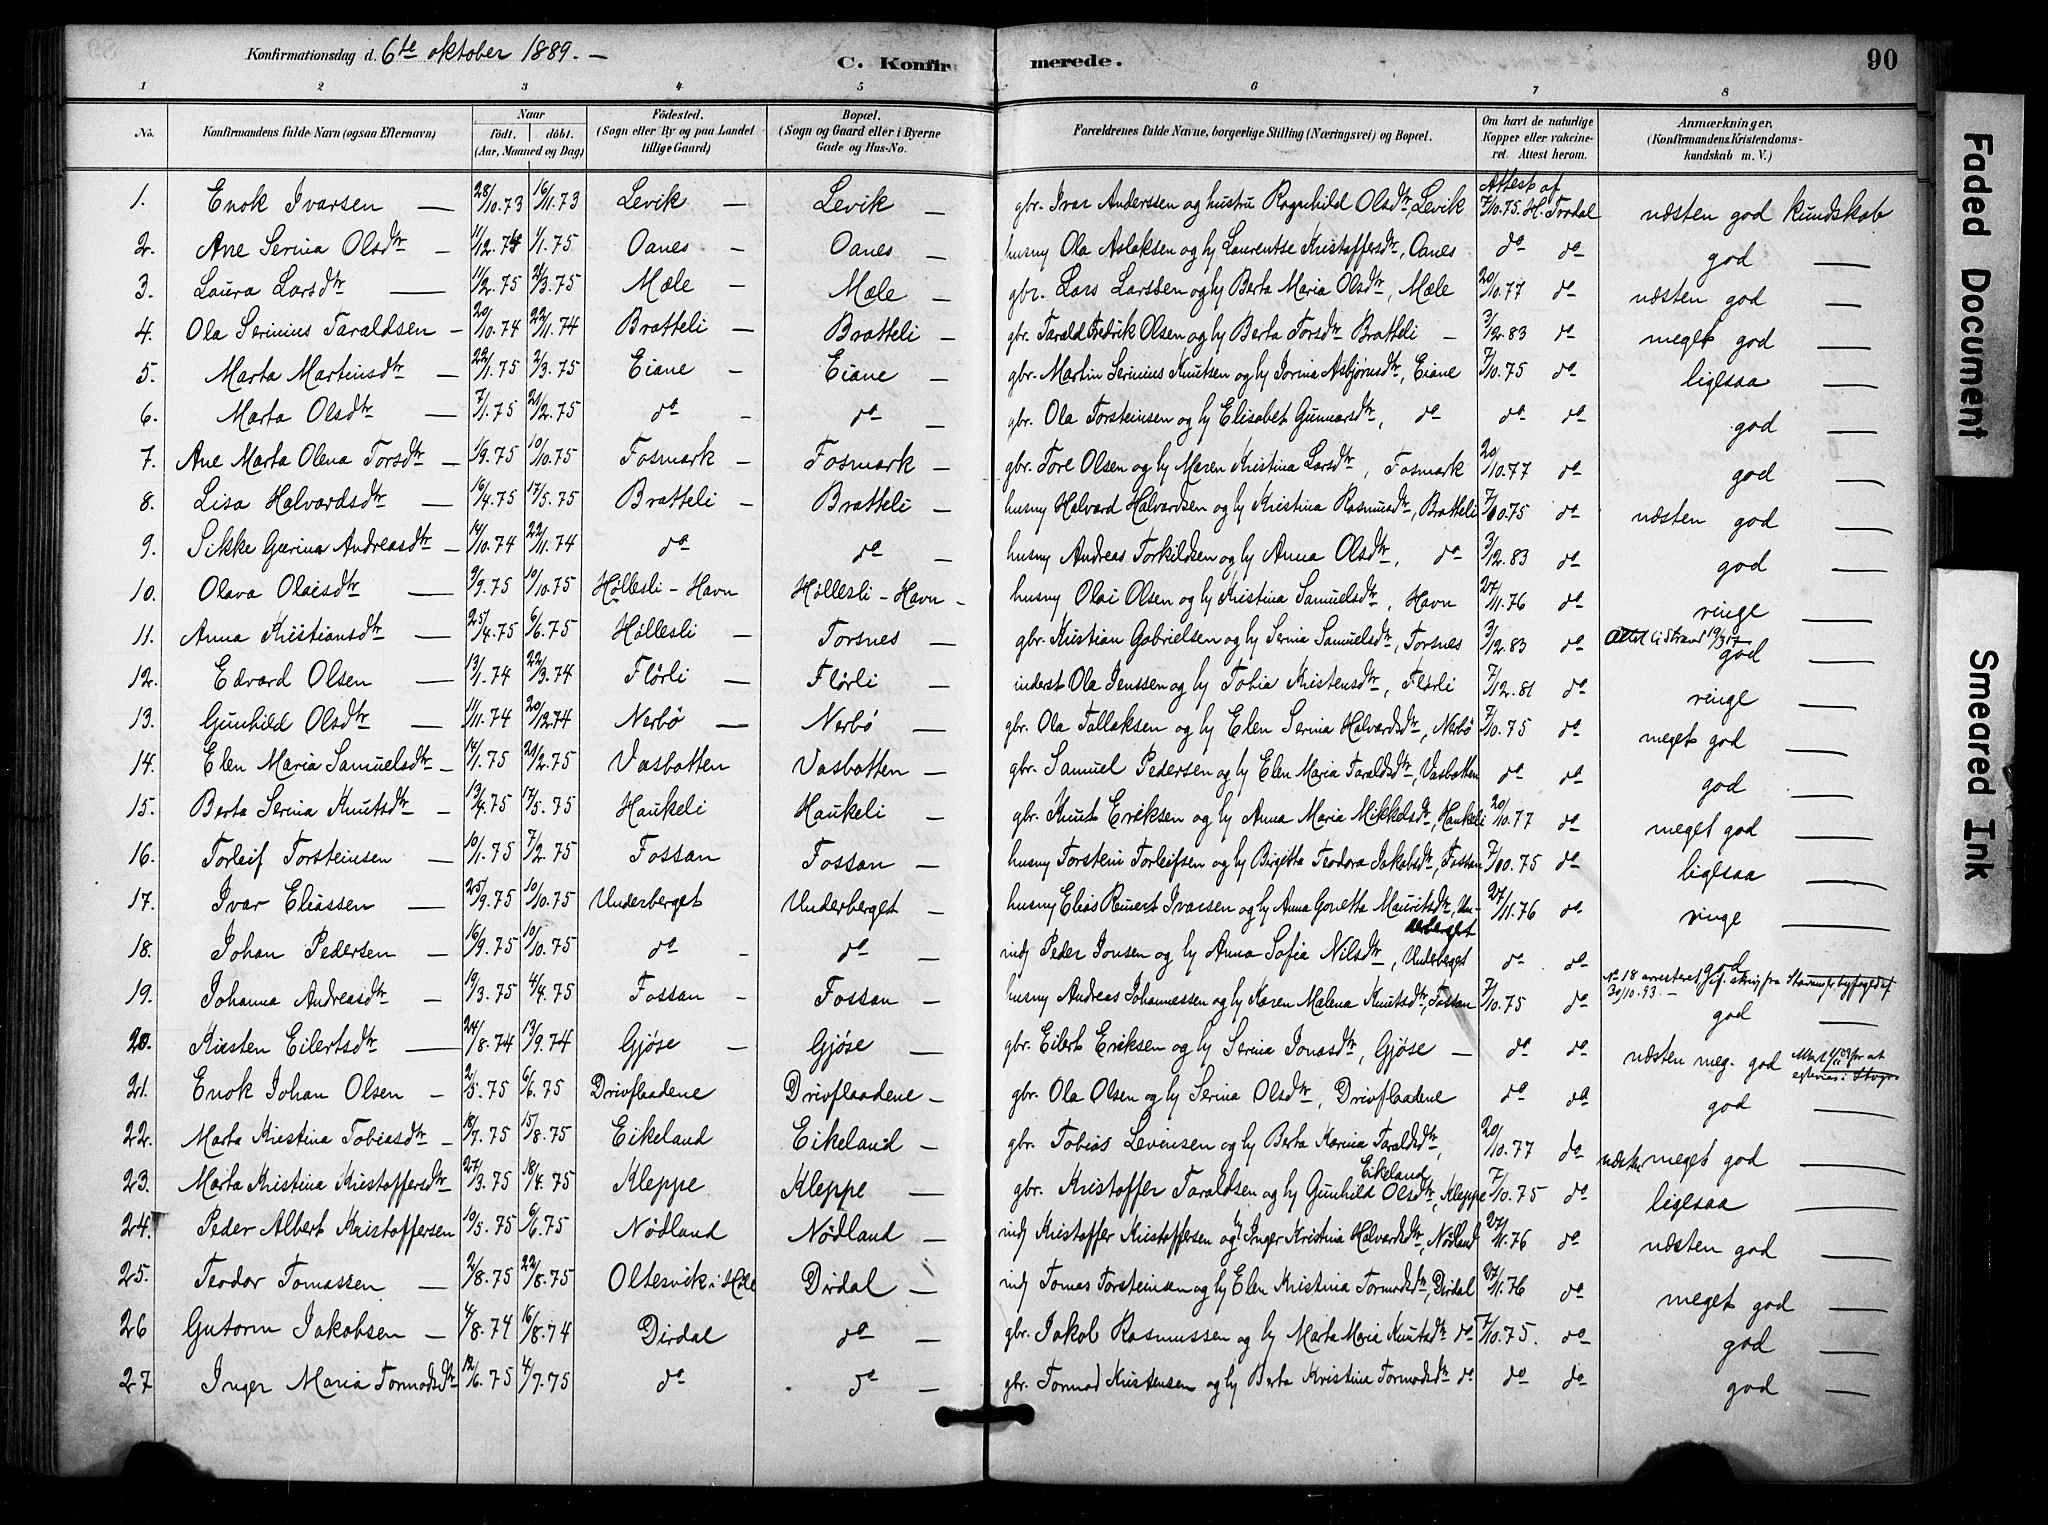 Konfirmationsdag d. 6te oktober 1889. —
C. Konfirmerede.
90
1 2 3 4 5 6 7 8
No. Konfirmandens fulde Navn (ogsaa Efternavn) Naar født. døbt. (Aar, Maaned og Dag) Fødested. (Sogn eller By og paa Landet tillige Gaard) Bopæl. (Sogn og Gaard eller i Byerne Gade og Hus-No. Forældrenes fulde Navne, borgerlige Stilling (Næringsvei) og Bopæl. Om havt de naturlige Kopper eller vakcineret. Attest herom. Anmærkninger, (Konfirmandens Kristendomskundskab m. V.)
1. Enok Ivarsen — 28/10.73 16/11.73 Levik — Levik — gbr. Ivar Anderssen og hustru Ragnhild Olsdtr, Levik Attest af 7/10.75. H. Tordal næsten god kundskab
2. Ane Serina Olsdtr — 11/12.74 1/1.75 Oanes — Oanes — husmy Ola Aslaksen og hy Laurentse Kristoffersdtr, Oanes do do god —
3. Laura Larsdtr — 11/2.75 21/3.75 Mæle — Mæle — gbr. Lars Larssen og hy Berta Maria Olsdtr, Mæle 20/10.77 do næsten god —
4. Ola Serinius Taraldsen — 20/10.74 22/11.74 Bratteli — Bratteli — gbr. Tarald Fredrik Olsen og hy Berta Torsdtr Bratteli — 3/12.83 do meget god —
5. Marta Martinsdtr — 22/1.75 2/3.75 Eiane — Eiane — gbr. Martin Serinius Knutsen og hy Jorina Asbjørnsdtr, Eiane 7/10.75 do ligesaa —
6. Marta Olsdtr — 7/1.75 21/2.75 do — do — gbr. Ola Torsteinsen og hy Elisabet Gunnarsdtr, do do do god —
7. Ane Marta Olena Torsdtr — 1/9.75 10/10.75 Fosmark — Fosmark — gbr. Tore Olsen og hy Maren Kristina Larsdtr, Fosmark 20/10.77 do god —
8. Lisa Halvardsdtr — 16/4.75 17/5.75 Bratteli — Bratteli — husmy Halvard Halvardsen og hy Kristina Rasmusdtr, Bratteli 7/10.75 do næsten god —
9. Sikke Gurina Andreasdtr — 14/10.74 22/11.74 do do — husmy Andreas Torkildsen og hy Anna Olsdtr, do 3/12.83 do god —
10. Olava Olaisdtr — 3/9.75 10/10.75 Høllesli - Havn Høllesli - Havn — husmy Olai Olsen og hy Kristina Samuelsdtr, Havn 27/11.76 do ringe —
11. Anna Kristiansdtr — 25/4.75 6/6.75 Høllesli — Torsnes — gbr. Kristian Gabrielsen og hy Serina Samuelsdtr, Torsnes 3/12.83 do god —
12. Edvard Olsen — 13/1.74 22/3.74 Flørli — Flørli — inderst Ola Jenssen og hy Tobia Kristensdtr, Flørli 7/12.81 do ringe —
13. Gunhild Olsdtr — 11/11.74 20/12.74 Nerbø — Nerbø — gbr. Ola Tallaksen og hy Elen Serina Halvardsdtr, Nerbø 7/10.75 do meget god —
14. Elen Maria Samuelsdtr — 14/1.75 21/2.75 Vasbotten Vasbotten — gbr. Samuel Pedersen og hy Elen Maria Taraldsdtr, Vasbotten do do god —
15. Berta Serina Knutsdtr — 13/4.75 17/5.75 Haukeli Haukeli — gbr. Knut Eriksen og hy Anna Maria Mikkelsdtr, Haukeli 20/10.77 do meget god —
16. Torleif Torsteinsen — 10/1.75 7/2.75 Fossan Fossan — husmy Torstein Torleifsen og hy Birgitta Teodora Jakobsdtr, Fossan 7/10.75 do ligesaa —
17. Ivar Eliassen — 25/9.75 10/10.75 Underberget Underberget — husmy Elias Reinert Ivarsen og hy Anna Gonetta Mauritsdtr, Underberget 27/11.76 do ringe —
18. Johan Pedersen — 16/9.75 10/10.75 do do — indj Peder Jonsen og hy Anna Sofia Nilsdtr, Underberget do do god
19. Johanna Andreasdtr — 19/3.75 4/4.75 Fossan — Fossan — husmy Andreas Johannessen og hy Karen Malena Knutsdtr, Fossan 7/10.75 do No 18 arresteret 30/10.93. — god —
20. Kirsten Eilertsdtr — 24/8.74 13/9.74 Gjøse — Gjøse — gbr. Eilert Eriksen og hy Serina Jonasdtr, Gjøse — do do næsten meg. god
21. Enok Johan Olsen — 2/5.75 6/6.75 Drivflaadene Drivflaadene — gbr. Ola Olsen og hy Serina Olsdtr, Drivflaadene do do god —
22. Marta Kristina Tobiasdtr — 18/7.75 15/8.75 Eikeland Eikeland — gbr. Tobias Levinsen og hy Berta Karina Taraldsdtr, Eikeland 20/10.77 do næsten meget god —
23. Marta Kristina Kristoffersdtr 27/3.75 18/4.75 Kleppe Kleppe — gbr. Kristoffer Taraldsen og hy Gunhild Olsdtr, Kleppe 7/10.75 do ligesaa —
24. Peder Albert Kristoffersen 10/5.75 6/6.75 Nødland Nødland — indj Kristoffer Kristoffersen og hy Inger Kristina Halvardsdtr, Nødland 27/11.76 do næsten god —
25. Teodor Tomassen — 2/8.75 22/8.75 Oltesvik i Høle Dirdal — indj Tomas Torsteinsen og hy Elen Kristina Tormodsdtr, Dirdal 27/11.76 do meget god —
26 Gutorm Jakobsen — 4/8.74 16/8.74 Dirdal do — gbr. Jakob Rasmussen og hy Marta Maria Knutsdtr do 7/10.75. do god —
27 Inger Maria Tormodsdtr 12/6.75 4/7.75 do do — gbr. Tormod Kristensen og hy Berta Kristina Tormodsdtr do do do god —
Faded Document
Smeared Ink